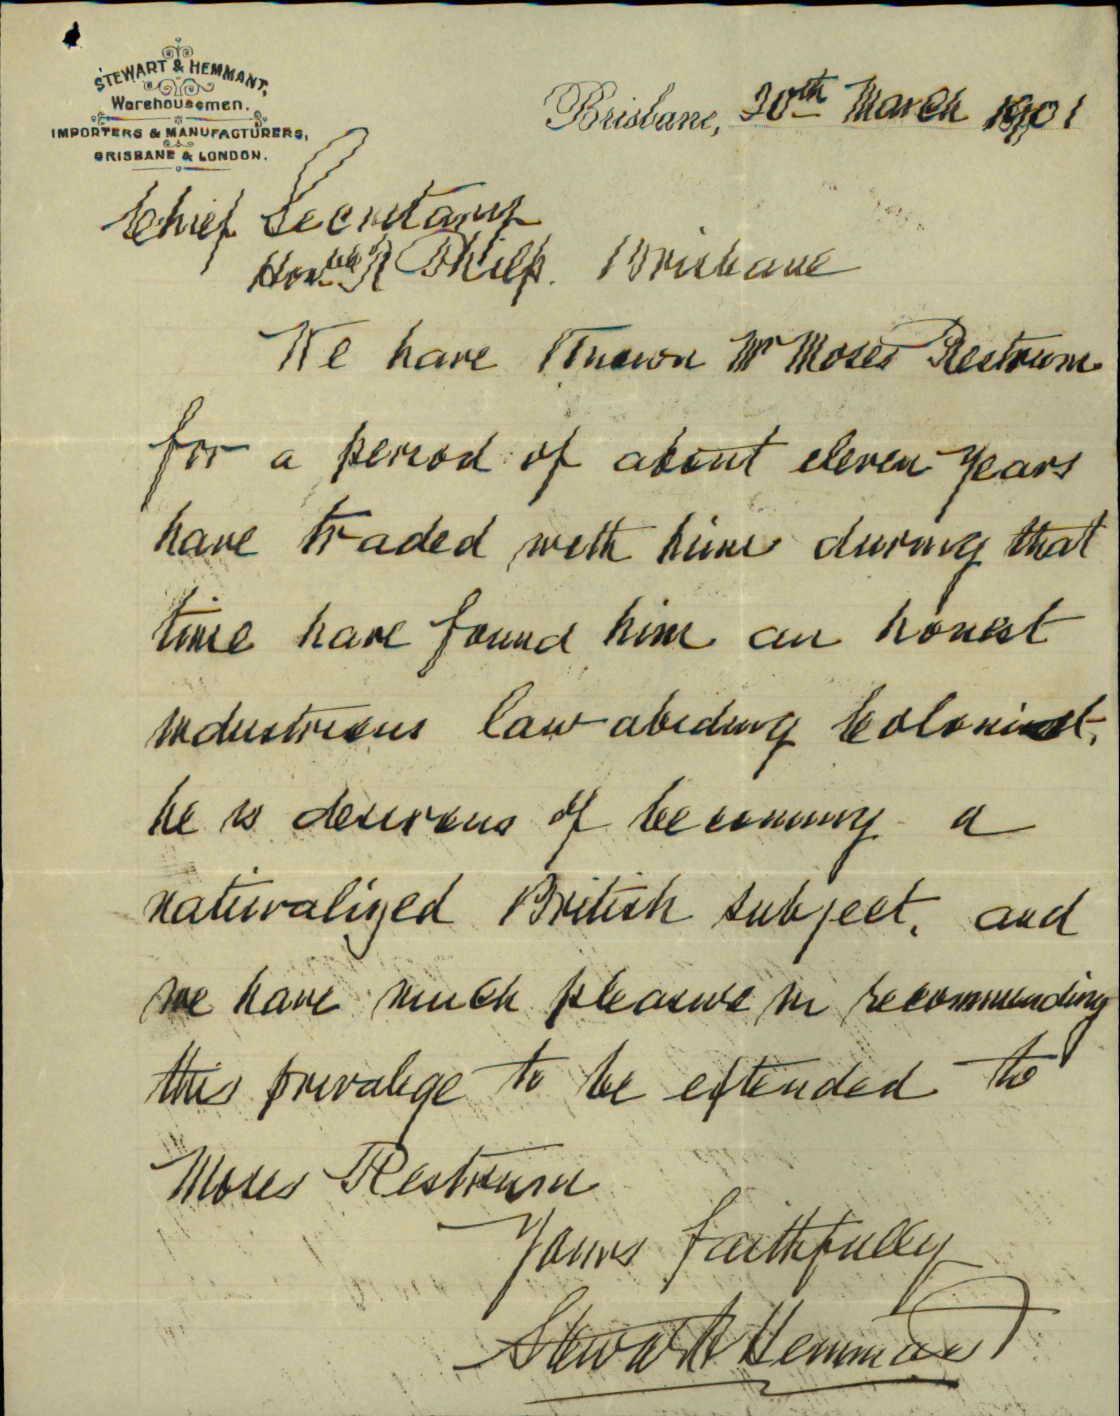 STEWART & HEMMANT,
Warehousemen.
IMPORTERS & MANUFACTURERS,
BRISBANE & LONDON.
Brisbane, 20th March 1901
Chief Secretary
Honble R Philp. Brisbane
We have Known Mr Moses Restrum
for a period of about eleven years
have traded with him during that
time have found him an honest
industrious law abiding Colonist,
he is desirous of becoming a
naturalized British subject, and
we have much pleasure in recommending
this privalege to be extended to
Moses Restrum
Yours faithfully
Stewart & Hemmant